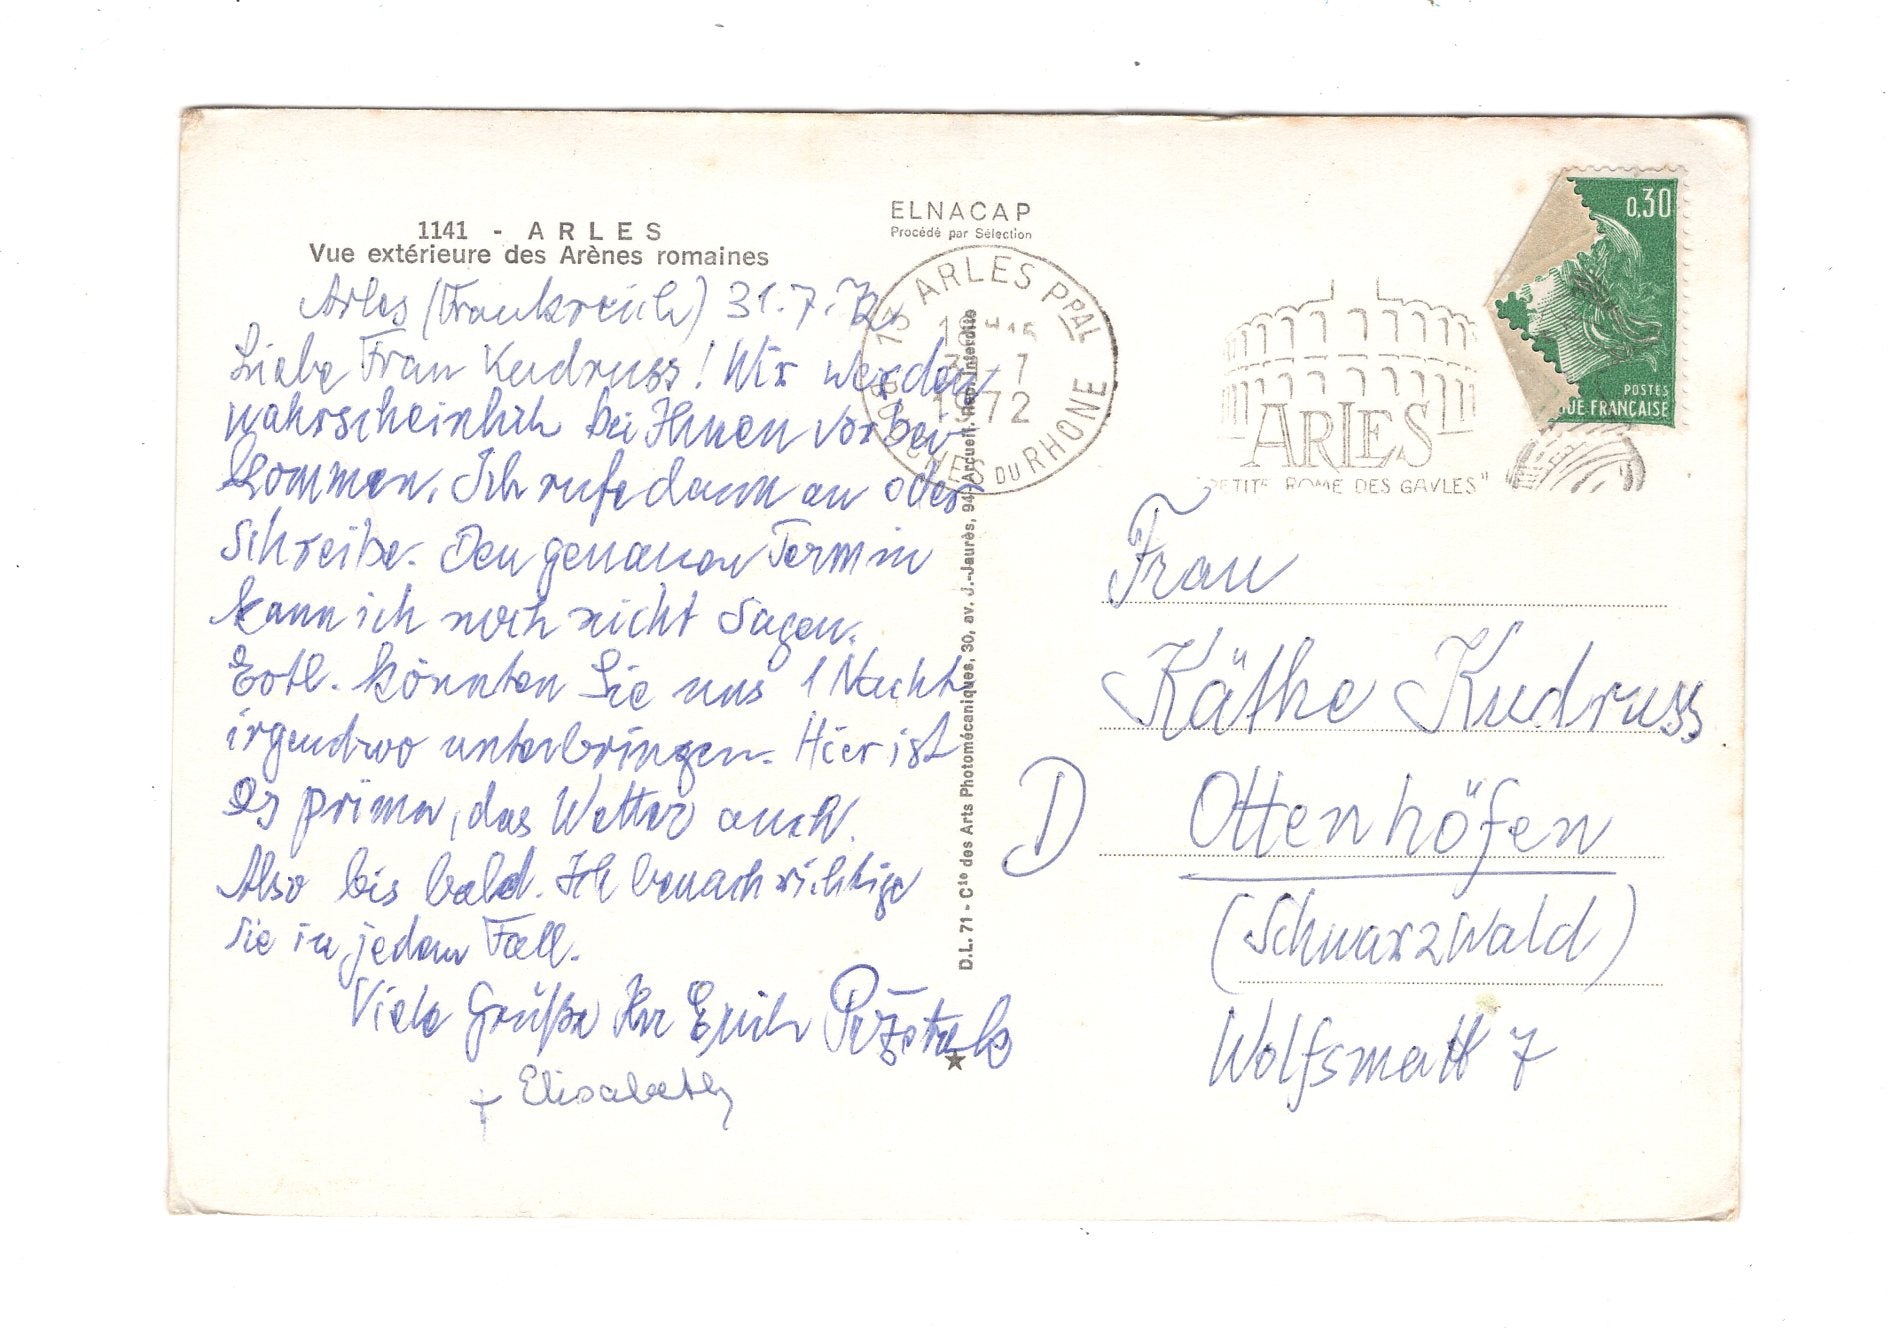 1141 - ARLES
Vue extérieure des Arènes romaines
ELNACAP
Procédé par Sélection
Arles (Frankreich) 31.7.72
Liebe Frau Kudruss! Wir werden
wahrscheinlich bei Ihnen vorbei
kommen. Ich rufe dann an oder
schreibe. Den genauen Termin
kann ich noch nicht sagen.
Evtl. könnten Sie uns 1 Nacht
irgendwo unterbringen. Hier ist
es prima, das Wetter auch.
Also bis bald. Ich benachrichtige
Sie in jedem Fall.
Viele Grüße Ihr Erich
+ Elisabeth
D.L. 71 - Cie des Arts Photomécaniques, 30, av. J.-Jaurès, 94-Arcueil. Rep. interdite
13 ARLES PPAL
BOUCHES DU RHONE
1972
ARLES
"PETITE ROME DES GAULES"
0,30
POSTES
QUE FRANÇAISE
Frau
Käthe Kudruss
D Ottenhöfen
(Schwarzwald)
Wolfsmatt 7